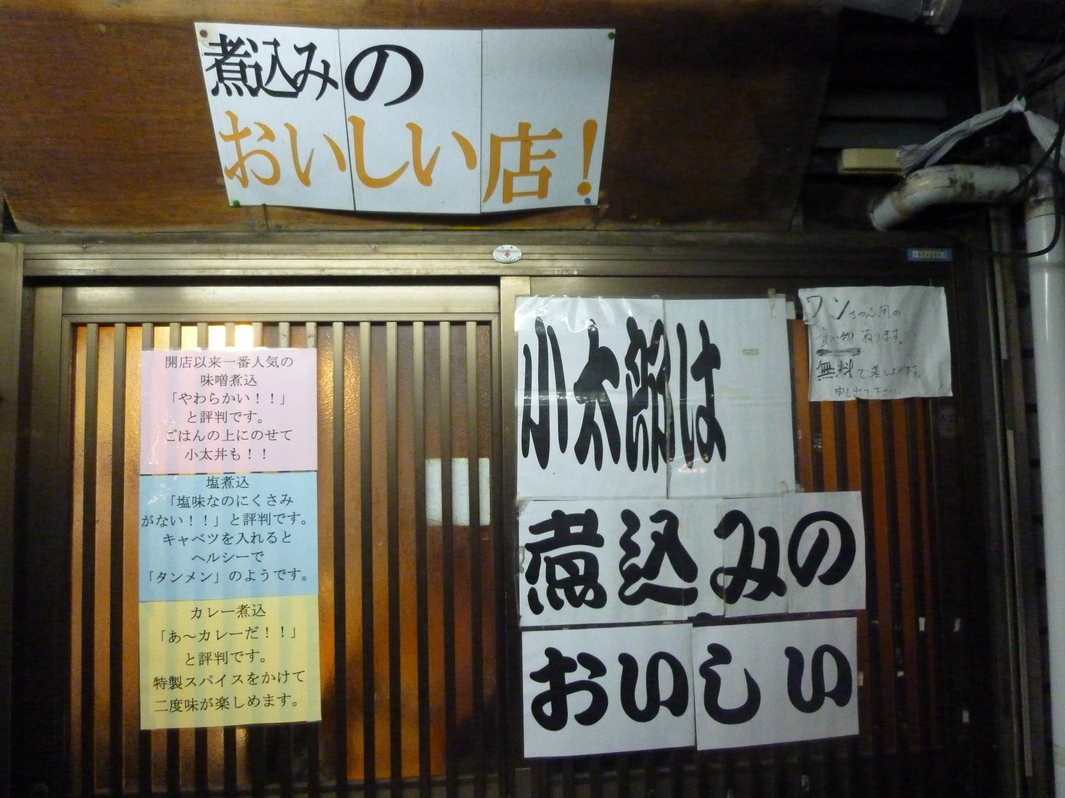 煮込みの
おいしい店！
開店以来一番人気の
味噌煮込
「やわらかい！！」
と評判です。
ごはんの上にのせて
小太丼も！！
塩煮込
「塩味なのにくさみ
がない！！」と評判です。
キャベツを入れると
ヘルシーで
「タンメン」のようです。
カレー煮込
「あ～カレーだ！！」
と評判です。
特製スパイスをかけて
二度味が楽しめます。
小太郎は
煮込みの
おいしい
ワンちゃん用の
食べ物 有ります。
無料で差し上げます。
申し出て下さい。